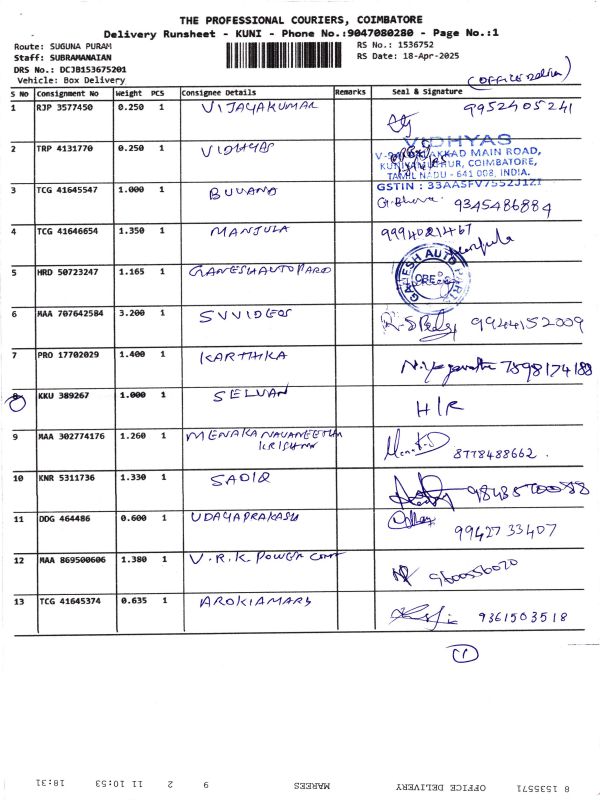 THE PROFESSIONAL COURIERS, COIMBATORE
Delivery Runsheet - KUNI - Phone No.:9047080280 - Page No.:1
Route: SUGUNA PURAM
RS No.: 1536752
Staff: SUBRAMANAIAN
RS Date: 18-Apr-2025
DRS No.: DCJB153675201
Vehicle: Box Delivery
(OFFICE Delivery)
S No Consignment No Weight PCS Consignee Details Remarks Seal & Signature
1 RJP 3577450 0.250 1 VIJAYAKUMAR 9952405241
2 TRP 4131770 0.250 1 VIDHYAS VIDHYAS
AKKAD MAIN ROAD,
KUNIYAMUTHUR, COIMBATORE,
TAMIL NADU - 641 008, INDIA.
GSTIN : 33AASFV7552J1Z1
3 TCG 41645547 1.000 1 BUVANA 9345486884
4 TCG 41646654 1.350 1 MANJULA 9994021467
Manjula
5 HRD 50723247 1.165 1 GANESH AUTO PARD GANESH AUTO
6 MAA 707642584 3.200 1 SVVIDEOS 9944152009
7 PRO 17702029 1.400 1 KARTHIKA 7598174188
8 KKU 389267 1.000 1 SELVAN H/R
9 MAA 302774176 1.260 1 MENAKA NAVANEETHA
KRISHNA
8778488662.
10 KNR 5311736 1.330 1 SADIQ
11 DDG 464486 0.600 1 UDAYAPRAKASH 9942733407
12 MAA 869500606 1.380 1 V.R.K. POWER 9600556020
13 TCG 41645374 0.635 1 AROKIAMARY 9361503518
(1)
8 1535571 OFFICE DELIVERY MAREES 9 2 11 10:53 18:31